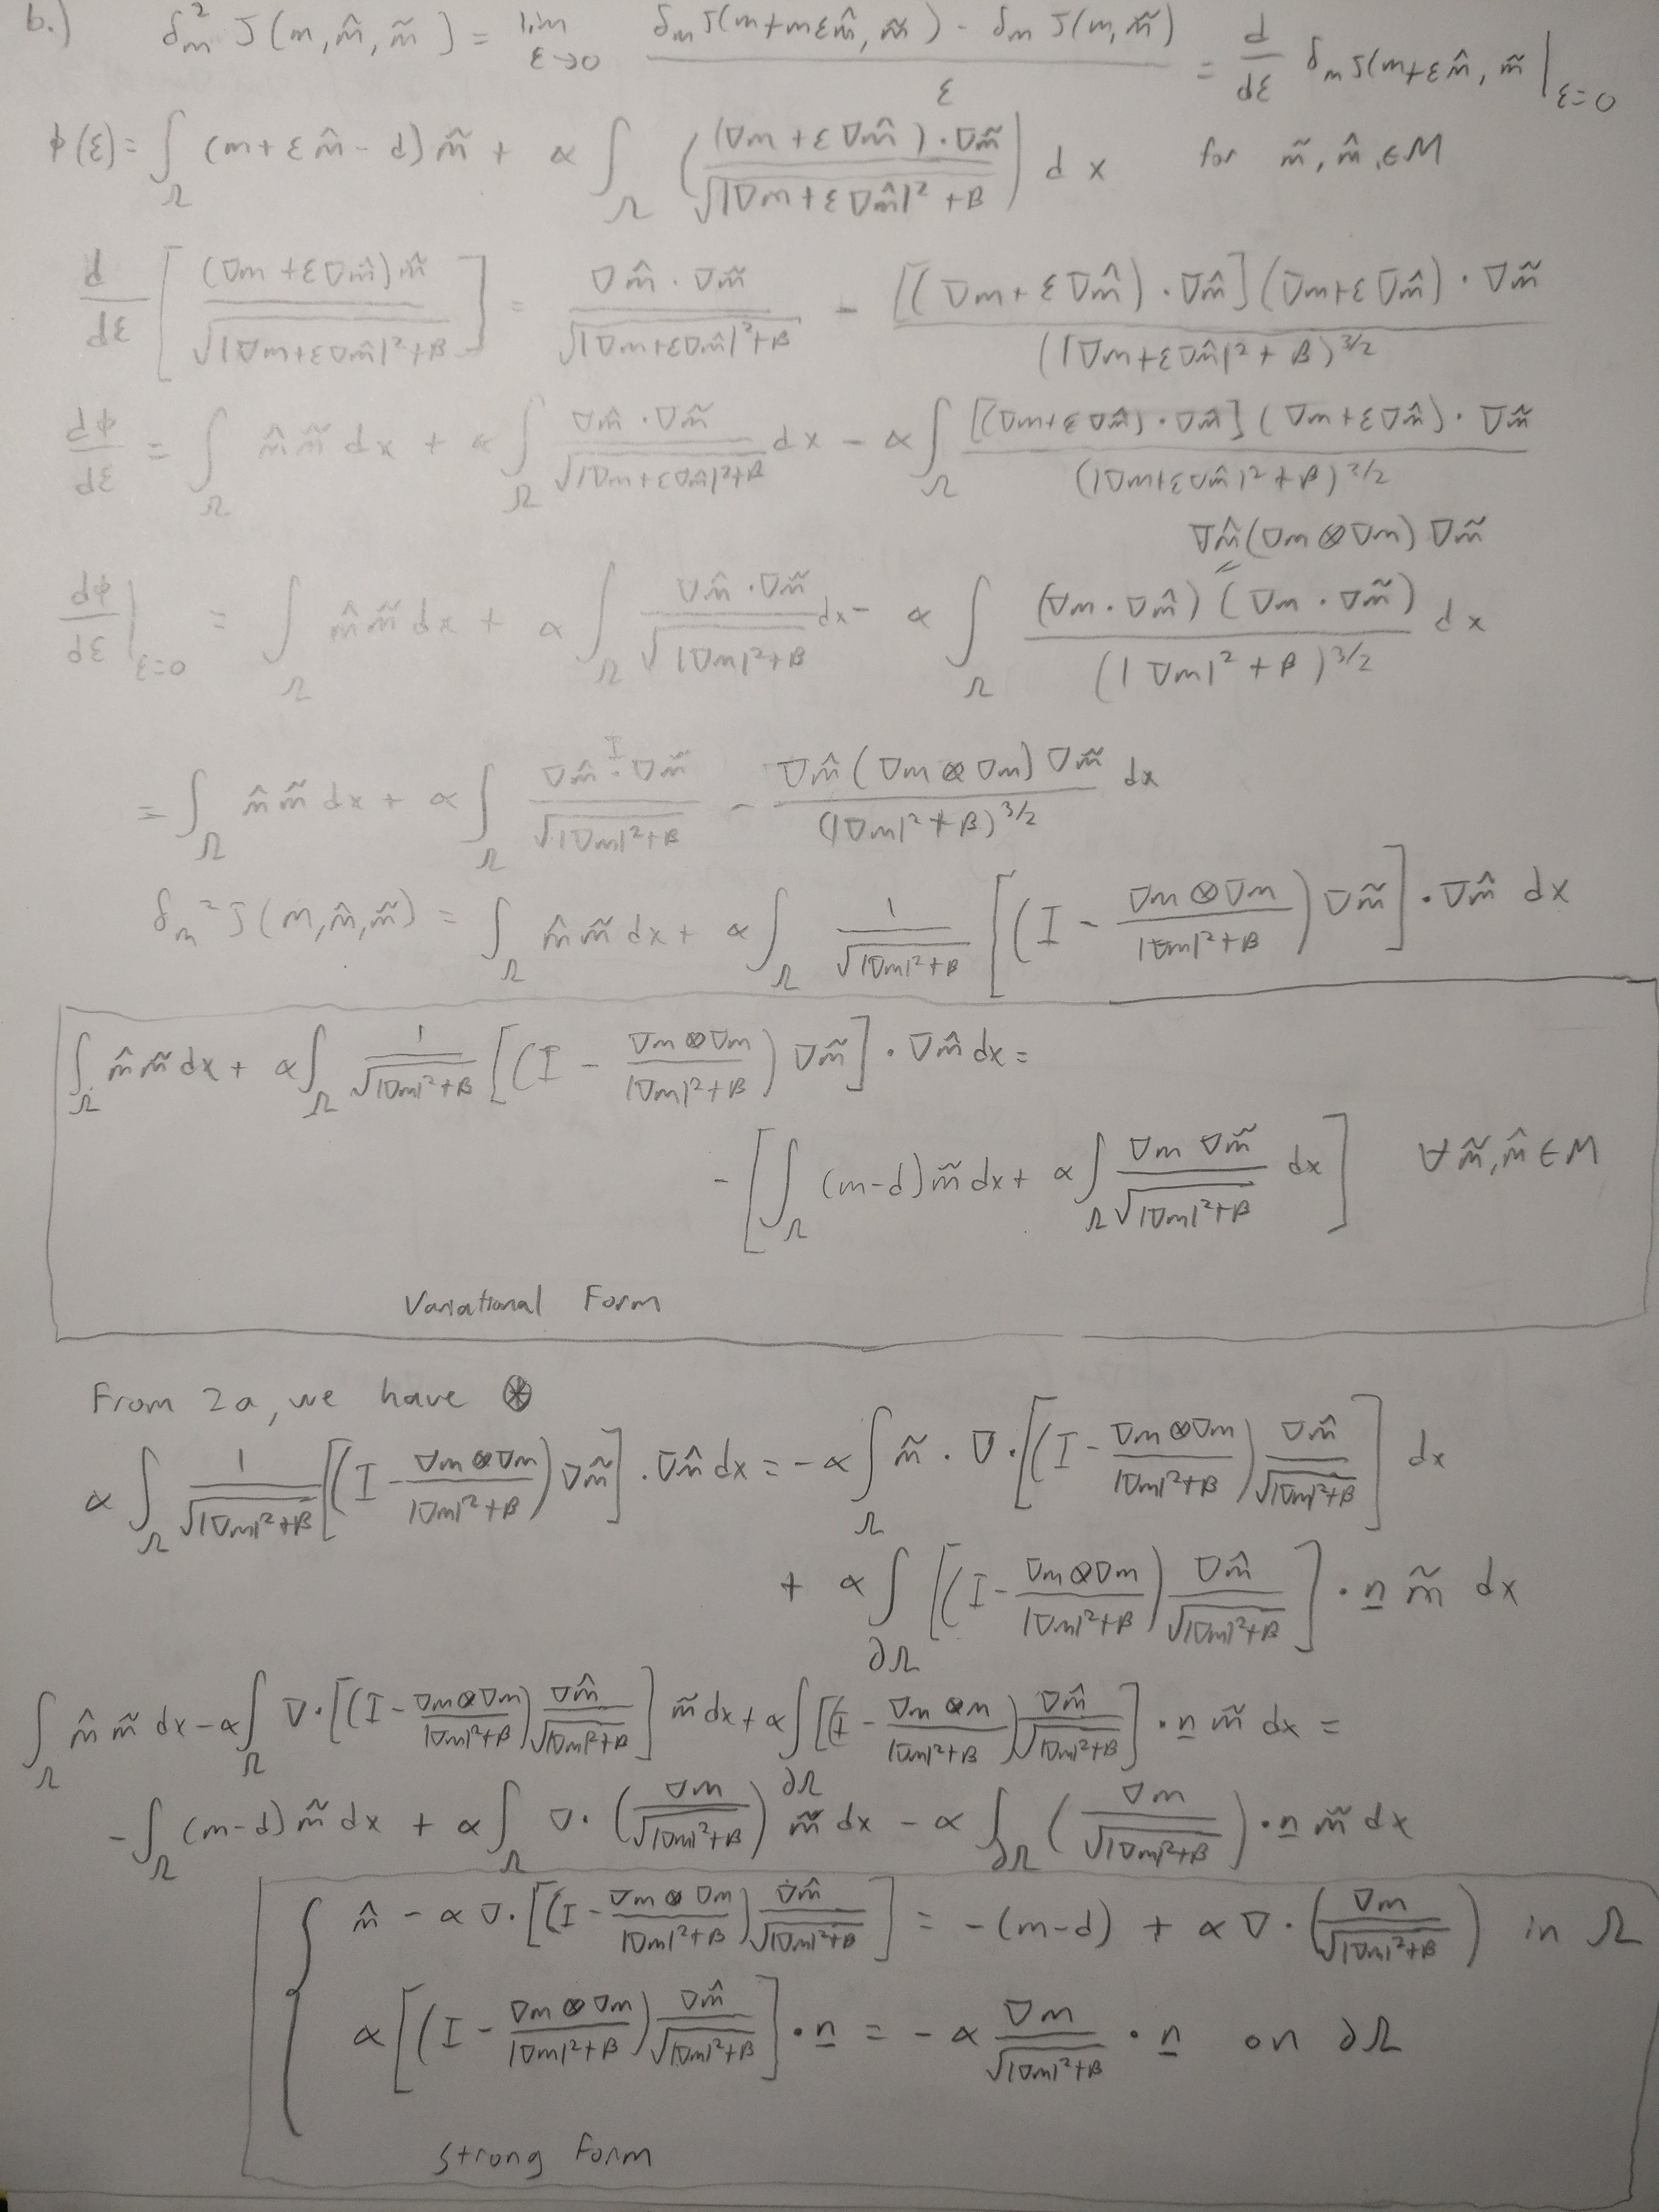 b.) δ_m² J(m, m̂, m̃) = lim_{ε→0} (δ_m J(m+mεm̂, m̃) - δ_m J(m, m̃)) / ε = d/dε δ_m J(m+εm̂, m̃ |_{ε=0}
ϕ(ε) = ∫_Ω (m+εm̂-d) m̃ + α ∫_Ω ( (∇m+ε∇m̂)·∇m̃ / √(|∇m+ε∇m̂|²+β) ) dx for m̃, m̂, ∈ M
d/dε [ (∇m+ε∇m̂) m̃ / √(|∇m+ε∇m̂|²+β) ] = ∇m̂·∇m̃ / √(|∇m+ε∇m̂|²+β) - [(∇m+ε∇m̂)·∇m̂](∇m+ε∇m̂)·∇m̃ / (|∇m+ε∇m̂|²+β)^{3/2}
dϕ/dε = ∫_Ω m̂ m̃ dx + α ∫_Ω ∇m̂·∇m̃ / √(|∇m+ε∇m̂|²+β) dx - α ∫_Ω [(∇m+ε∇m̂)·∇m̂](∇m+ε∇m̂)·∇m̃ / (|∇m+ε∇m̂|²+β)^{3/2}
∇m̂(∇m⊗∇m)∇m̃
=
dϕ/dε |_{ε=0} = ∫_Ω m̂ m̃ dx + α ∫_Ω ∇m̂·∇m̃ / √(|∇m|²+β) dx - α ∫_Ω (∇m·∇m̂)(∇m·∇m̃) / (|∇m|²+β)^{3/2} dx
= ∫_Ω m̂ m̃ dx + α ∫_Ω ∇m̂ I · ∇m̃ / √(|∇m|²+β) - ∇m̂(∇m⊗∇m)∇m̃ / (|∇m|²+β)^{3/2} dx
δ_m² J(m, m̂, m̃) = ∫_Ω m̂ m̃ dx + α ∫_Ω 1/√(|∇m|²+β) [ (I - ∇m⊗∇m / |∇m|²+β) ∇m̃ ] · ∇m̂ dx
∫_Ω m̂ m̃ dx + α ∫_Ω 1/√(|∇m|²+β) [ (I - ∇m⊗∇m / |∇m|²+β) ∇m̃ ] · ∇m̂ dx =
- [ ∫_Ω (m-d) m̃ dx + α ∫_Ω ∇m ∇m̃ / √(|∇m|²+β) dx ] ∀ m̃, m̂ ∈ M
Variational Form
From 2a, we have ⊛
α ∫_Ω 1/√(|∇m|²+β) [ (I - ∇m⊗∇m / |∇m|²+β) ∇m̃ ] · ∇m̂ dx = -α ∫_Ω m̃ · ∇·[ (I - ∇m⊗∇m / |∇m|²+β) ∇m̂ / √(|∇m|²+β) ] dx
+ α ∫_∂Ω [ (I - ∇m⊗∇m / |∇m|²+β) ∇m̂ / √(|∇m|²+β) ] · n m̃ dx
∫_Ω m̂ m̃ dx - α ∫_Ω ∇·[ (I - ∇m⊗∇m / |∇m|²+β) ∇m̂ / √(|∇m|²+β) ] m̃ dx + α ∫_∂Ω [ (I - ∇m⊗m / |∇m|²+β) ∇m̂ / √(|∇m|²+β) ] · n m̃ dx =
- ∫_Ω (m-d) m̃ dx + α ∫_Ω ∇·( ∇m / √(|∇m|²+β) ) m̃ dx - α ∫_∂Ω ( ∇m / √(|∇m|²+β) ) · n m̃ dx
{ m̂ - α ∇·[ (I - ∇m⊗∇m / |∇m|²+β) ∇m̂ / √(|∇m|²+β) ] = -(m-d) + α ∇·( ∇m / √(|∇m|²+β) ) in Ω
α [ (I - ∇m⊗∇m / |∇m|²+β) ∇m̂ / √(|∇m|²+β) ] · n = -α ∇m / √(|∇m|²+β) · n on ∂Ω
Strong Form